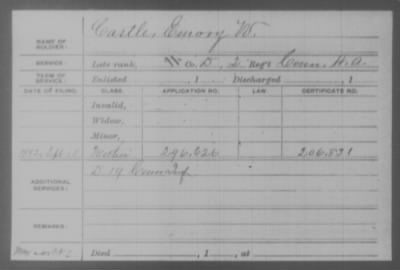 NAME OF SOLDIER: Castle, Emory W.
SERVICE: Late rank, Co. D, 2 Reg't Conn. H.A.
TERM OF SERVICE: Enlisted , 1 Discharged , 1
DATE OF FILING. CLASS. APPLICATION NO. LAW. CERTIFICATE NO.
Invalid,
Widow,
Minor,
Sept. Mother 296,626 206,831
ADDITIONAL SERVICES: D. 19 Conn Inf
REMARKS:
Died , 1 , at